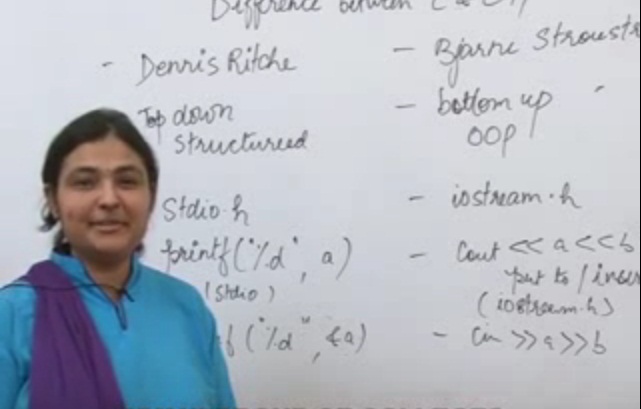 Difference between C & C++
- Dennis Ritche
- Bjarne Stroustr
Top down
structureed
- bottom up
OOP
Stdio.h
- iostream.h
printf("%d", a)
(Stdio)
- Cout << a << b
put to / inser
(iostream.h)
f("%d", &a)
- Cin >> a >> b